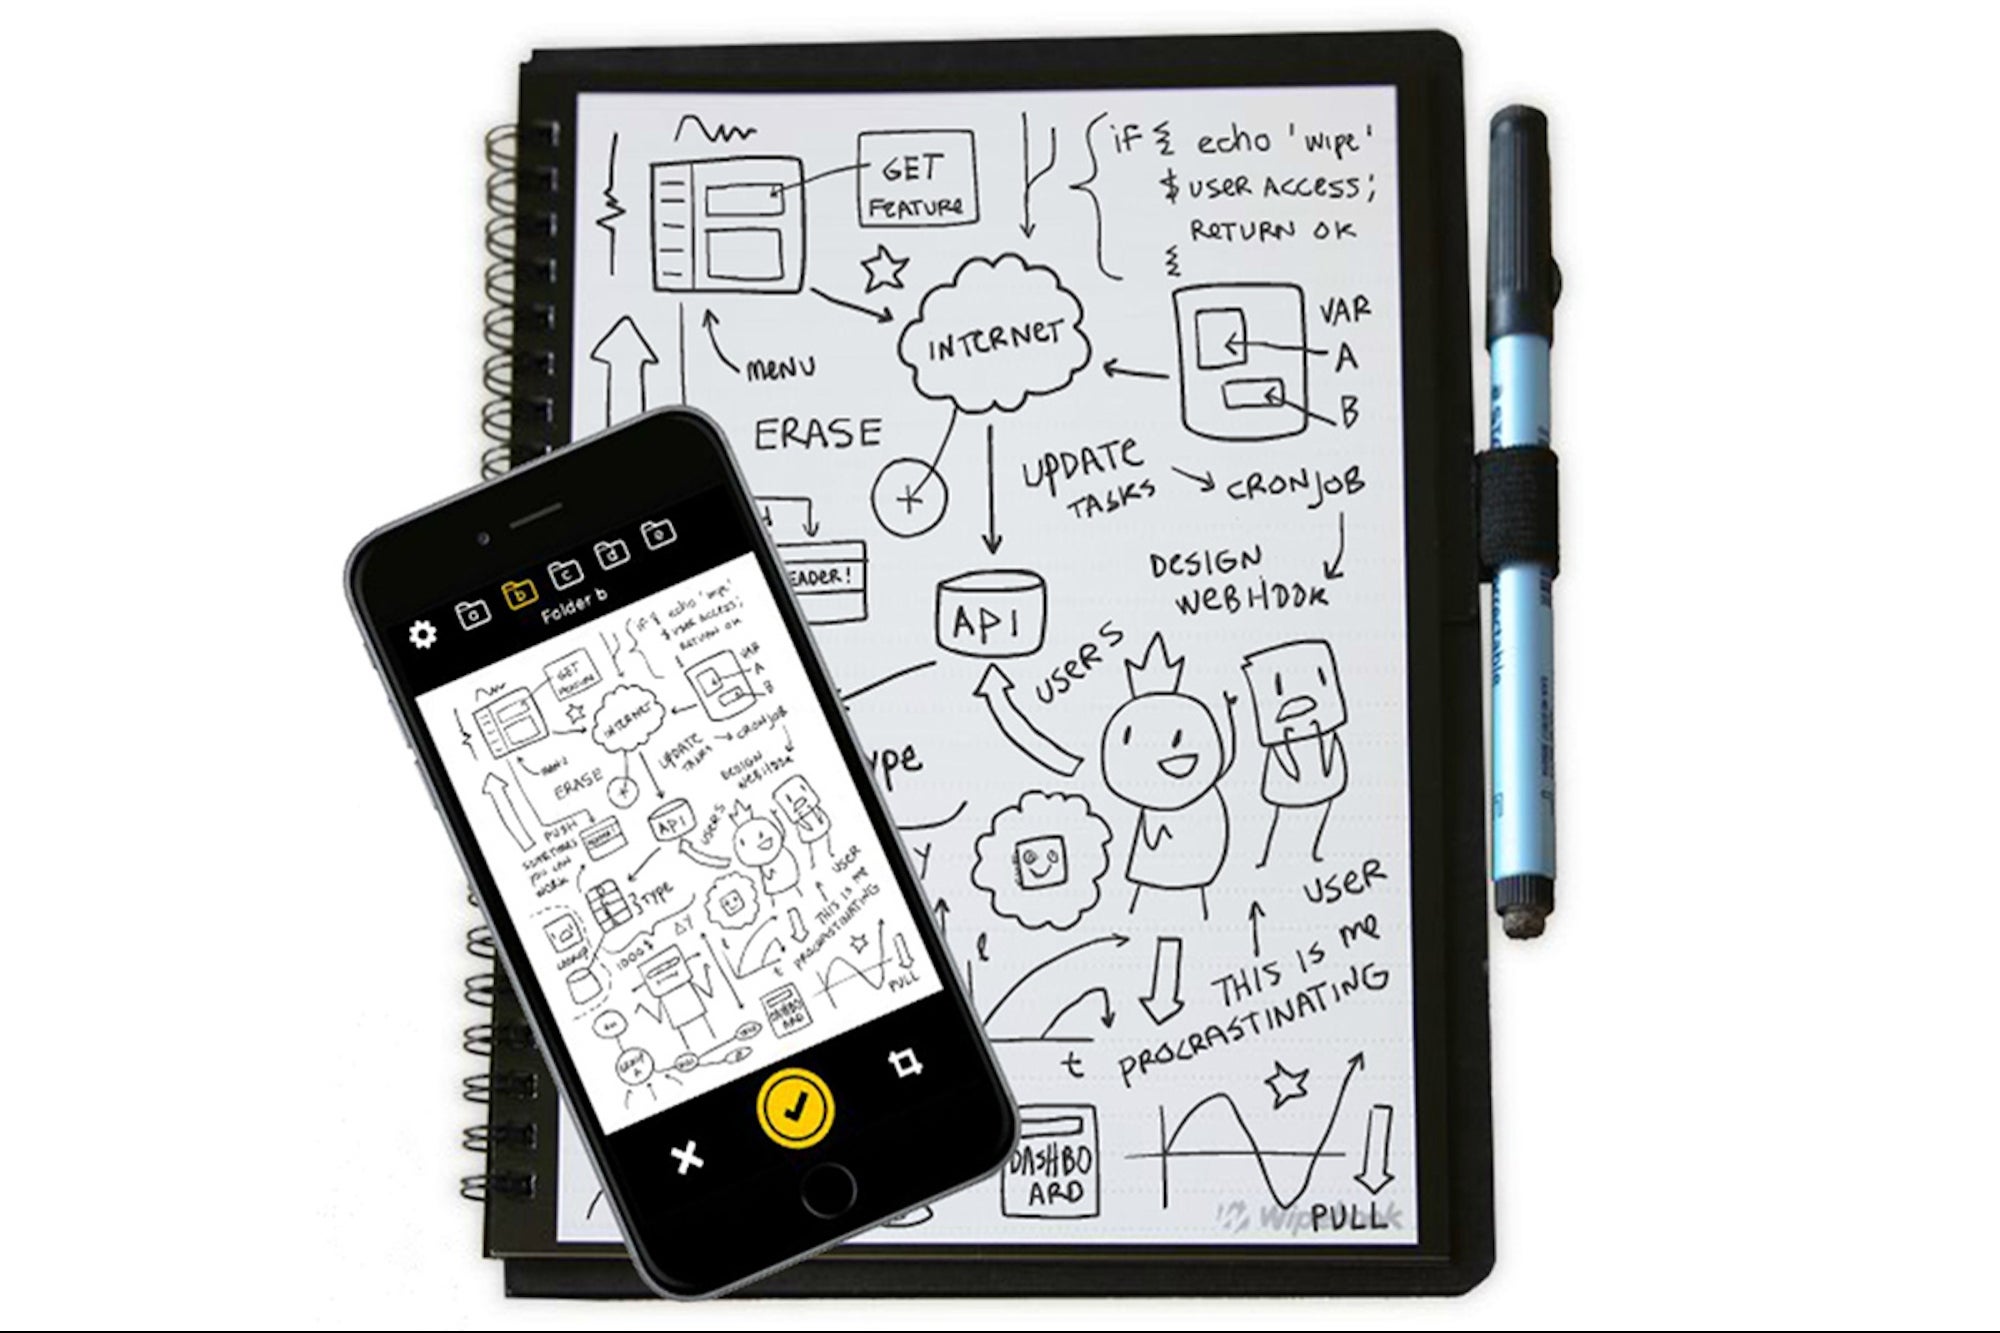 if { echo 'wipe'
$ USER ACCESS;
RETURN OK
GET
FEATURE
INTERNET
VAR
A
B
MENU
ERASE
UPDATE
TASKS
CRONJOB
EADER!
DESIGN
WEBHOOK
API
USERS
YPE
Y
USER
THIS IS ME
PROCRASTINATING
t
DASHBO
ARD
PULL
Wipebook
a
b
c
d
e
Folder b
if { echo 'wipe'
$ USER ACCESS;
RETURN OK
GET
FEATURE
INTERNET
VAR
A
B
MENU
ERASE
UPDATE
TASKS
CRONJOB
DESIGN
WEBHOOK
PUSH
SOMETIMES
YOU CAN
WORK
API
USERS
TYPE
USER
THIS IS ME
PROCRASTINATING
LOOKUP
1000$
ΔY
t
DASHBO
ARD
PULL